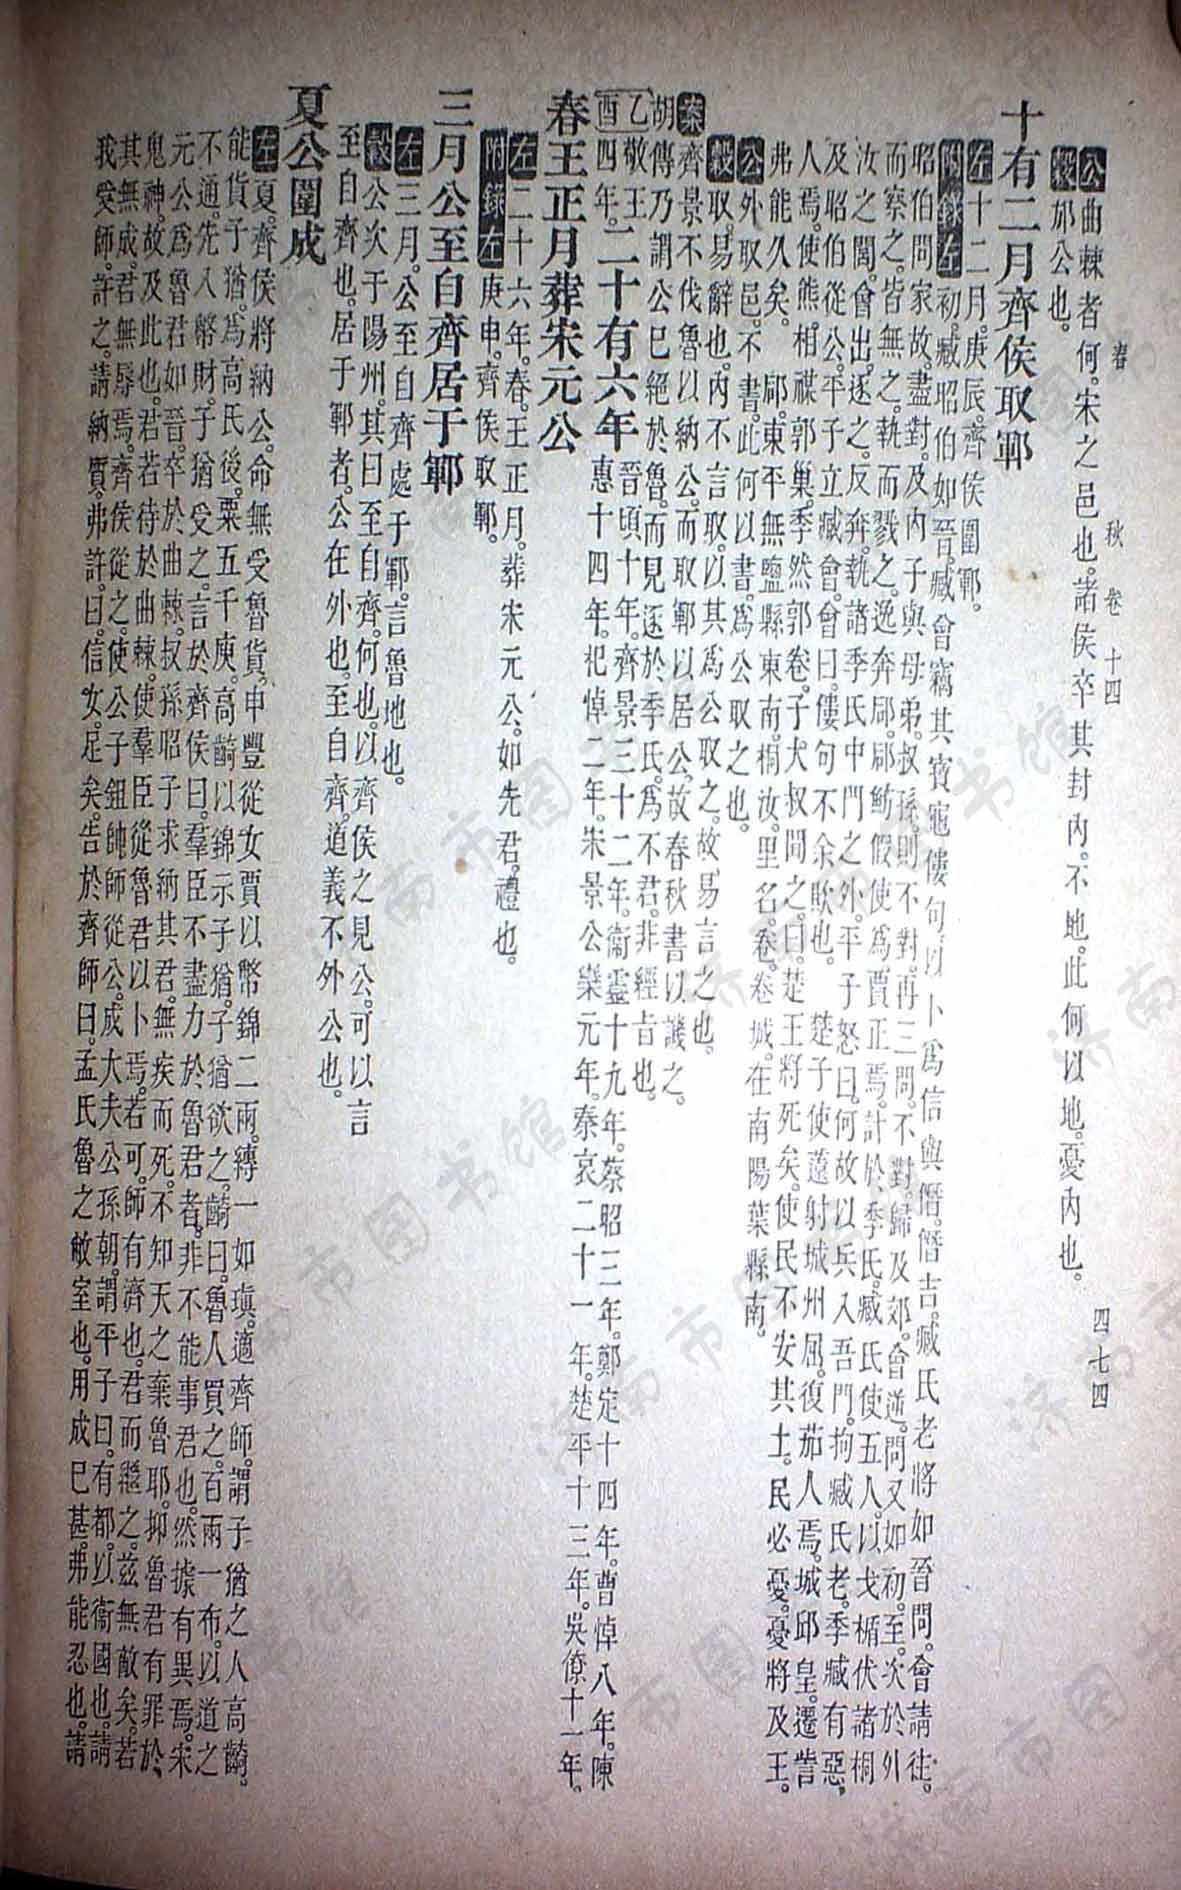 春 秋 卷 十四 四七四
公曲棘者何。宋之邑也。諸侯卒其封內。不地。此何以地。憂內也。
穀邡公也。
十有二月齊侯取鄆
左十二月。庚辰。齊侯圍鄆。
附錄左初。臧昭伯如晉。臧會竊其寶龜僂句。以卜為信與僭。僭吉。臧氏老將如晉問。會請往。
昭伯問家故。盡對。及內子與母弟叔孫。則不對。再三問。不對。歸及郊。會逆。問又如初。至。次於外
而察之。皆無之。執而戮之。逸奔郈。郈魴假使為賈正焉。計於季氏。臧氏使五人。以戈楯伏諸桐
汝之閭。會出。逐之。反奔。執諸季氏中門之外。平子怒曰。何故以兵入吾門。拘臧氏老。季臧有惡。
及昭伯從公。平子立臧會。會曰。僂句不余欺也。 楚子使薳射城州屈。復茄人焉。城邱皇。遷訾
人焉。使熊相禖郭巢。季然郭卷。子大叔聞之。曰。楚王將死矣。使民不安其土。民必憂。憂將及王。
弗能久矣。 郈。東平無鹽縣東南。桐汝。里名。卷。卷城。在南陽葉縣南。
公外取邑。不書。此何以書。為公取之也。
穀取。易辭也。內不言取。以其為公取之。故易言之也。
案齊景不伐魯以納公。而取鄆以居公。故春秋書以譏之。
胡傳乃謂公已絕於魯。而見逐於季氏。為不君。非經旨也。
乙酉
敬王四年。二十有六年 晉頃十年。齊景三十二年。衞靈十九年。蔡昭三年。鄭定十四年。曹悼八年。陳
惠十四年。杞悼二年。宋景公欒元年。秦哀二十一年。楚平十三年。吳僚十一年。
春王正月葬宋元公
左二十六年。春。王正月。葬宋元公。如先君。禮也。
附錄左庚申。齊侯取鄆。
三月公至自齊居于鄆
左三月。公至自齊。處于鄆。言魯地也。
穀公次于陽州。其曰至自齊。何也。以齊侯之見公。可以言
至自齊也。居于鄆者。公在外也。至自齊。道義不外公也。
夏公圍成
左夏。齊侯將納公。命無受魯貨。申豐從女賈以幣錦二兩。縛一如瑱。適齊師。謂子猶之人高齮。
能貨子猶。為高氏後。粟五千庾。高齮以錦示子猶。子猶欲之。齮曰。魯人買之。百兩一布。以道之
不通。先入幣財。子猶受之。言於齊侯曰。羣臣不盡力於魯君者。非不能事君也。然據有異焉。宋
元公為魯君如晉。卒於曲棘。叔孫昭子求納其君。無疾而死。不知天之棄魯耶。抑魯君有罪於
鬼神。故及此也。君若待於曲棘。使羣臣從魯君以卜焉。若可。師有濟也。君而繼之。茲無敵矣。若
其無成。君無辱焉。齊侯從之。使公子鉏帥師從公。成大夫公孫朝。謂平子曰。有都。以衞國也。請
我受師。許之。請納質。弗許。曰。信女。足矣。告於齊師曰。孟氏魯之敝室也。用成已甚。弗能忍也。請